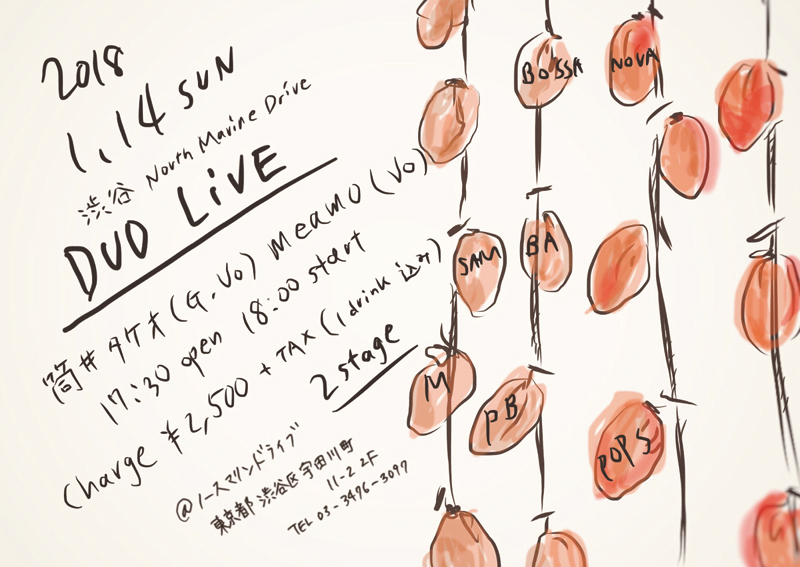 2018
1.14 SUN
渋谷 North Marine Drive
DUO LiVE
筒井タケオ(G.Vo) meamo(Vo)
17:30 open 18:00 start
charge ¥2,500 + TAX (1drink 込み)
2stage
@ノースマリンドライブ
東京都 渋谷区 宇田川町
11-2 2F
TEL 03-3476-3097
BOSSA NOVA
SAM BA
M PB POPS